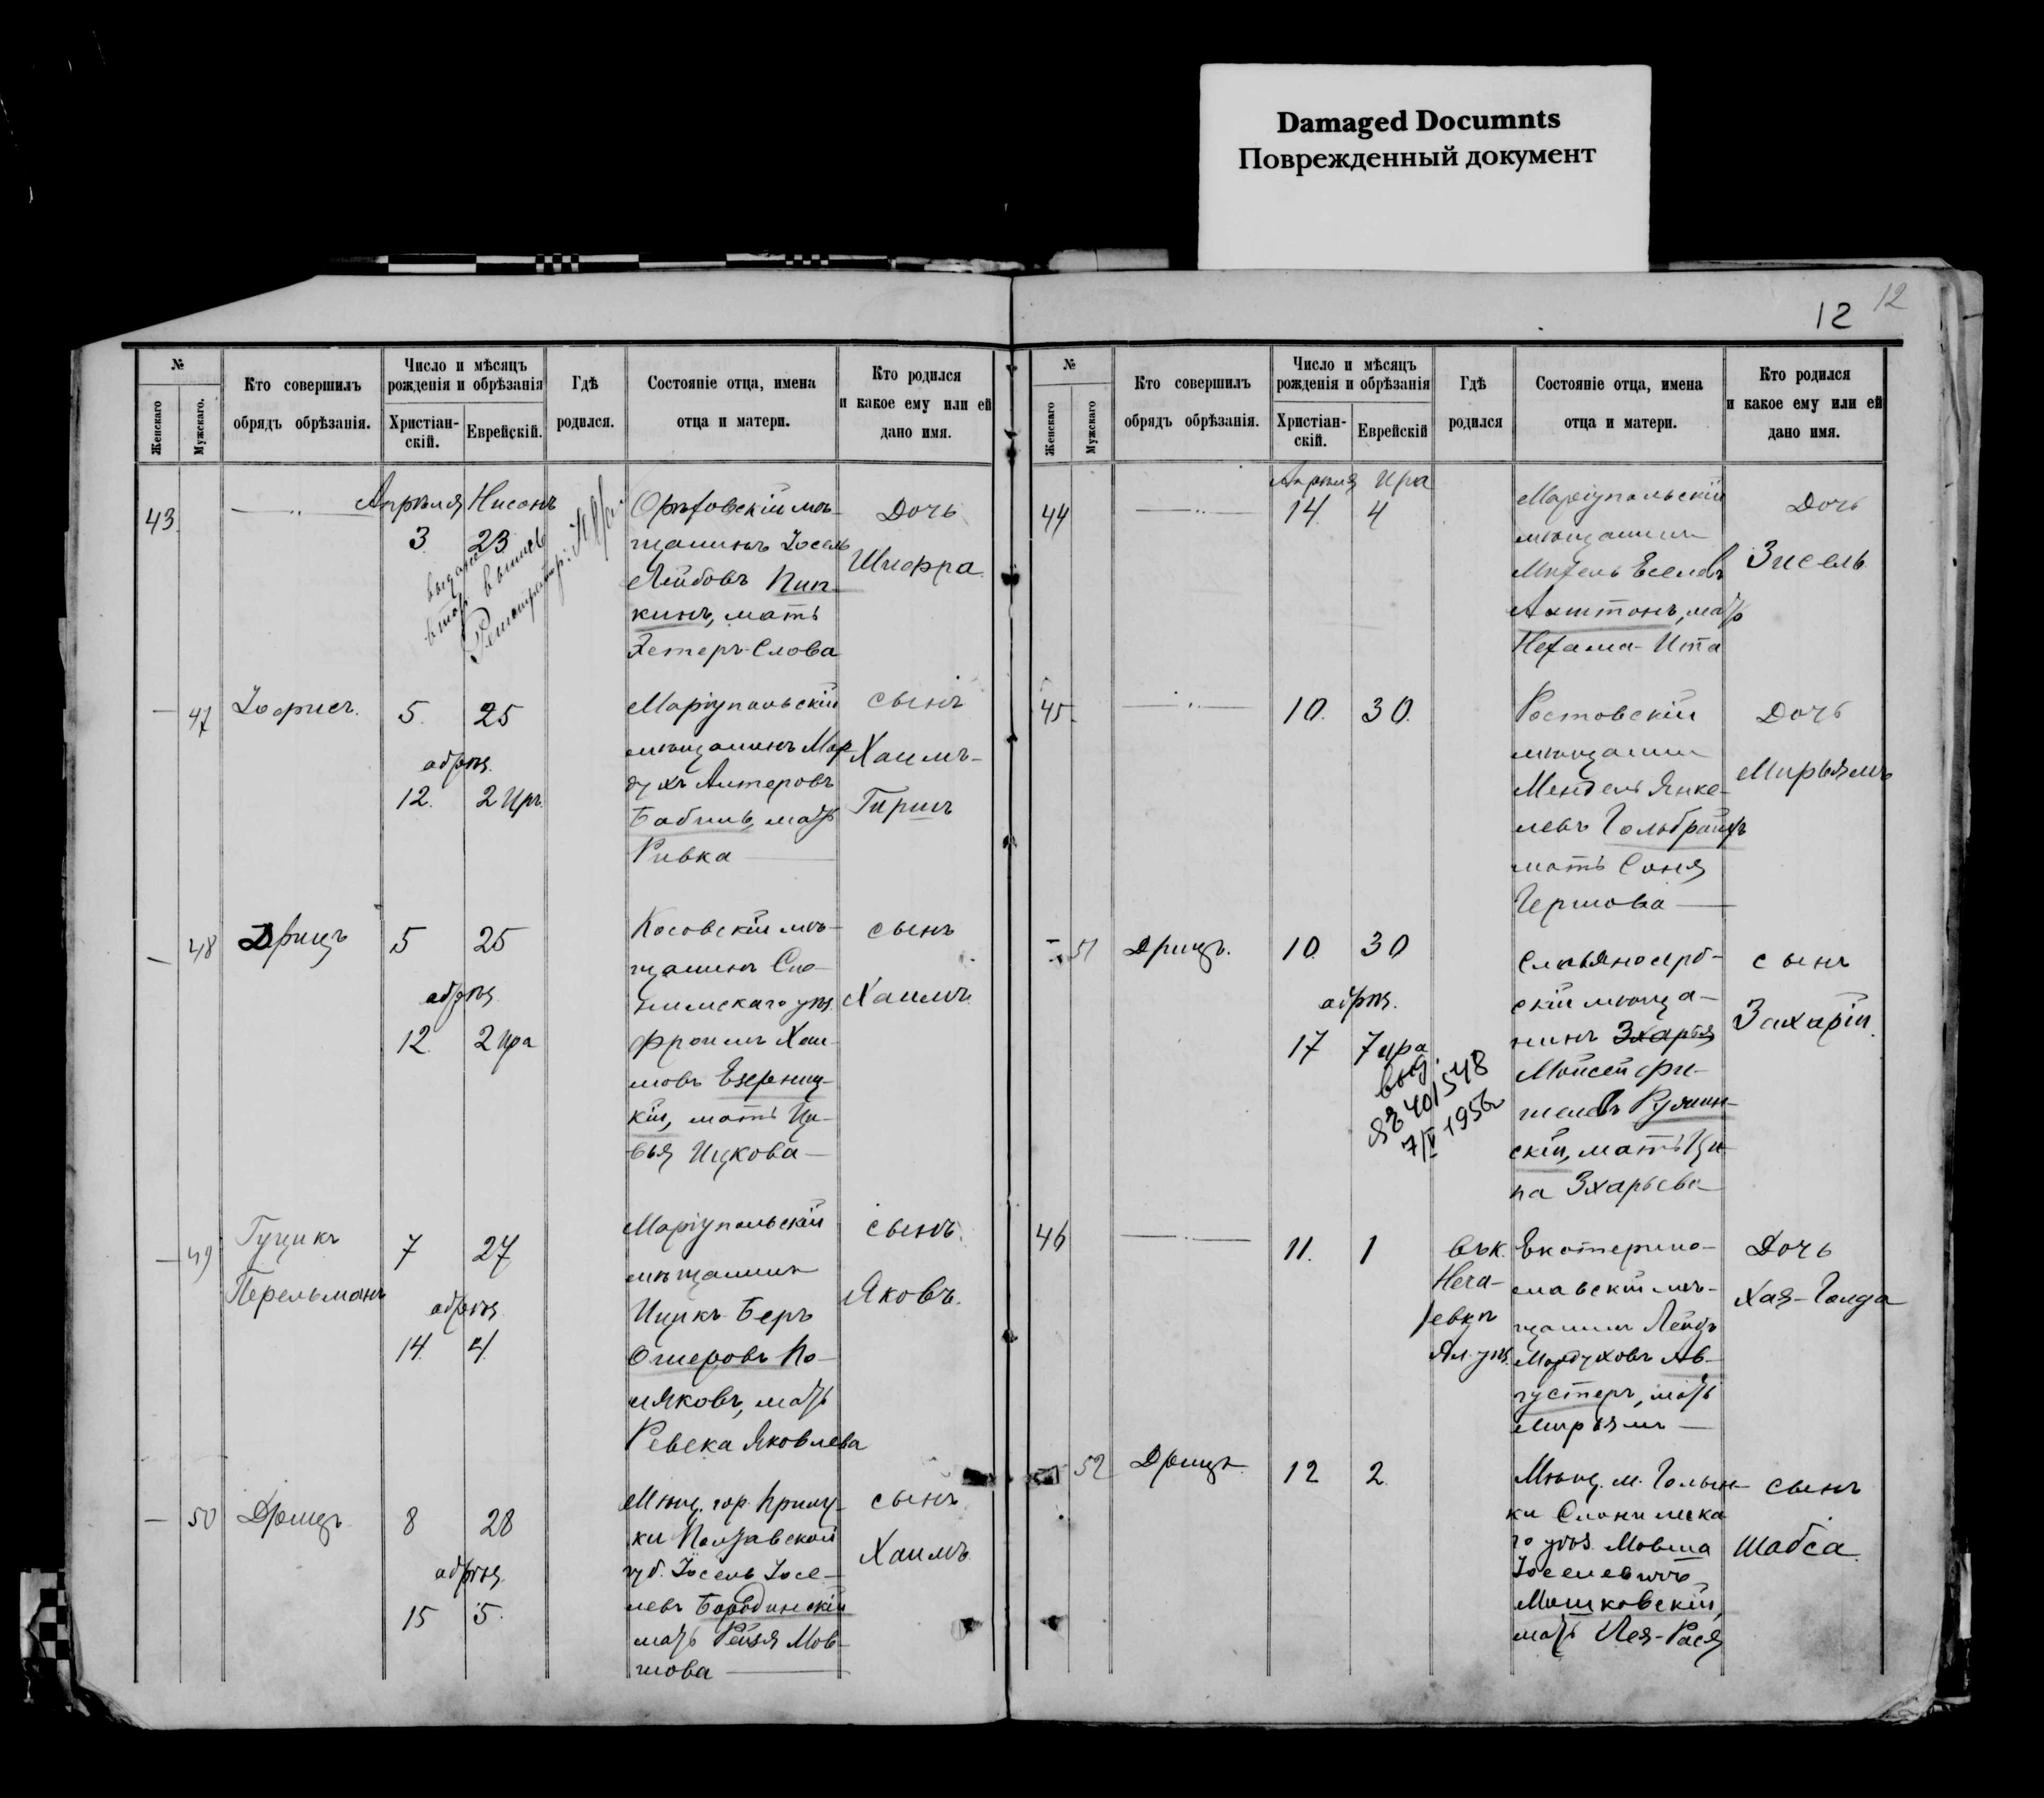 Damaged Documnts
Поврежденный документ
12
12
№
Женскаго
Мужскаго.
Кто совершилъ
обрядъ обрѣзанія.
Число и мѣсяцъ
рожденія и обрѣзанія
Христіан-
скій.
Еврейскій.
Гдѣ
родился.
Состояніе отца, имена
отца и матери.
Кто родился
и какое ему или ей
дано имя.
43
Апрѣля Нисонъ
3 23
Орѣховскій мѣ-
щанинъ Іосель
Лейбовъ Пип-
кинъ, мать
Эстеръ-Слова
Дочь
Шифра
47
Іофисъ.
5. 25
обрѣз.
12. 2 Иръ
Маріупольскій
мѣщанинъ Мор-
духъ Алтеровъ
Бабинъ, мать
Ривка
сынъ
Хаимъ-
Гиршъ
48
Дрицъ
5 25
обрѣз.
12. 2 Ира
Косовскій мѣ-
щанинъ Сло-
нимскаго уѣз.
Фроимъ Хаи-
мовъ Езерниц-
кій, мать Ци-
вья Ицкова
сынъ
Хаимъ
49
Гуцикъ
Перельманъ
7 27
обрѣз.
14. 4.
Маріупольскій
мѣщанинъ
Ицикъ-Беръ
Ошеровъ По-
ляковъ, мать
Ревека Яковлева
сынъ.
Яковъ.
50
Дрицъ
8 28
обрѣз.
15 5.
Мѣщ. гор. Прилу-
ки Полтавской
губ. Іосель Іосе-
левъ Бородинскій
мать Рейзя Мов-
шова
сынъ
Хаимъ.
№
Женскаго
Мужскаго
Кто совершилъ
обрядъ обрѣзанія.
Число и мѣсяцъ
рожденія и обрѣзанія
Христіан-
скій.
Еврейскій
Гдѣ
родился
Состояніе отца, имена
отца и матери.
Кто родился
и какое ему или ей
дано имя.
44
Апрѣля Ира
14. 4
Маріупольскій
мѣщанинъ
Михель Еселевъ
мать
Нехама-Ита
Дочь
Зисель
45
10. 30.
Ростовскій
мѣщанин
Мендель Янке-
левъ Гольбрайхъ
мать Соня
Гершова
Дочь
Мирьямъ
51
Дрицъ.
10. 30
обрѣз.
17 7 ира
выд.
ЯЗ 401548
7/V 1956
Славяносерб-
скій мѣща-
нинъ Зхарья
Мойсей фи-
шелевъ Румин-
скій, мать Ци-
па Зхарьева
сынъ
Захарій.
46
11. 1
Въ к.
Неча-
евкѣ
Ал. уѣз.
Екатерино-
славскій мѣ-
щанинъ Лейзъ
Мордуховъ Ав-
густеръ, мать
Мирьямъ
Дочь
Хая-Голда
52
Дрицъ.
12 2.
Мѣщ. м. Голын-
ки Слонимска
го уѣз. Мовша
Іоселевичъ
Мошковскій,
мать Лея-Рася
сынъ
Шабса.